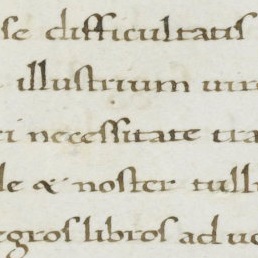 se difficultatis
illustrium uir
necessitate tra
de & noster tull
egros libros ad ue